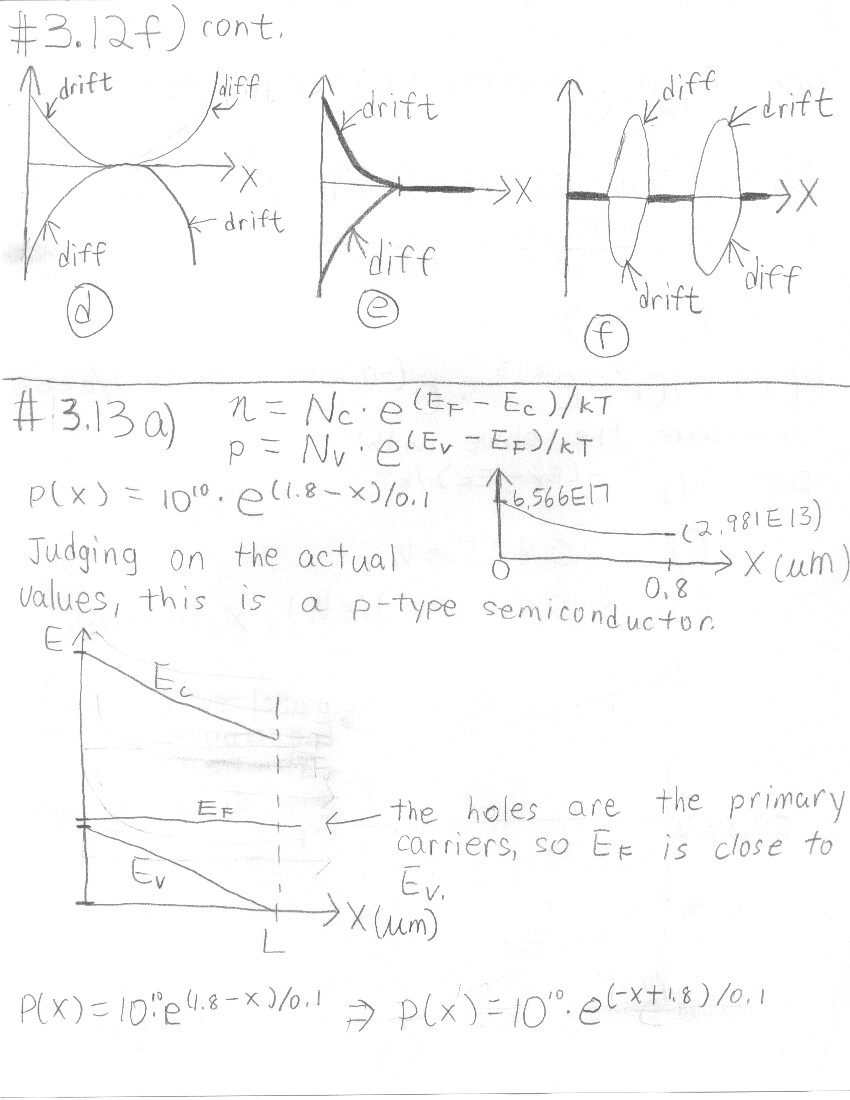 #3.12f) cont.
drift diff
X
drift
diff
d
drift
X
diff
e
diff drift
X
drift diff
f
#3.13a) n = Nc · e^(EF - Ec)/kT
p = Nv · e^(Ev - EF)/kT
p(x) = 10^10 · e^(1.8-x)/0.1
6.566E17
(2.981E13)
0 0.8 X (µm)
Judging on the actual
values, this is a p-type semiconductor.
E
Ec
EF
Ev
X(µm)
L
← the holes are the primary
carriers, so EF is close to
Ev.
P(x) = 10^10 · e^(1.8-x)/0.1 ⇒ p(x) = 10^10 · e^(-x+1.8)/0.1